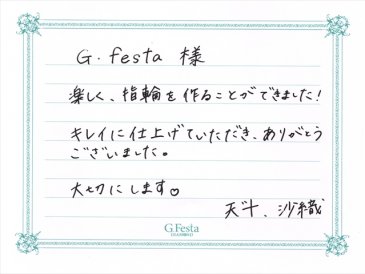 G.festa 様
楽しく、指輪を作ることができました!
キレイに仕上げていただき、ありがとう
ございました。
大切にします♡
沙織
G.Festa